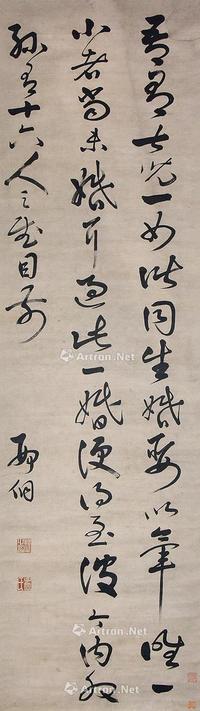 吾有七儿一女皆同生婚娶以毕唯一
小者尚未婚耳过此一婚便得至彼今内外
孙有十六人足慰目前
邢侗
Artron.Net
Artron.Net
Artron.Net